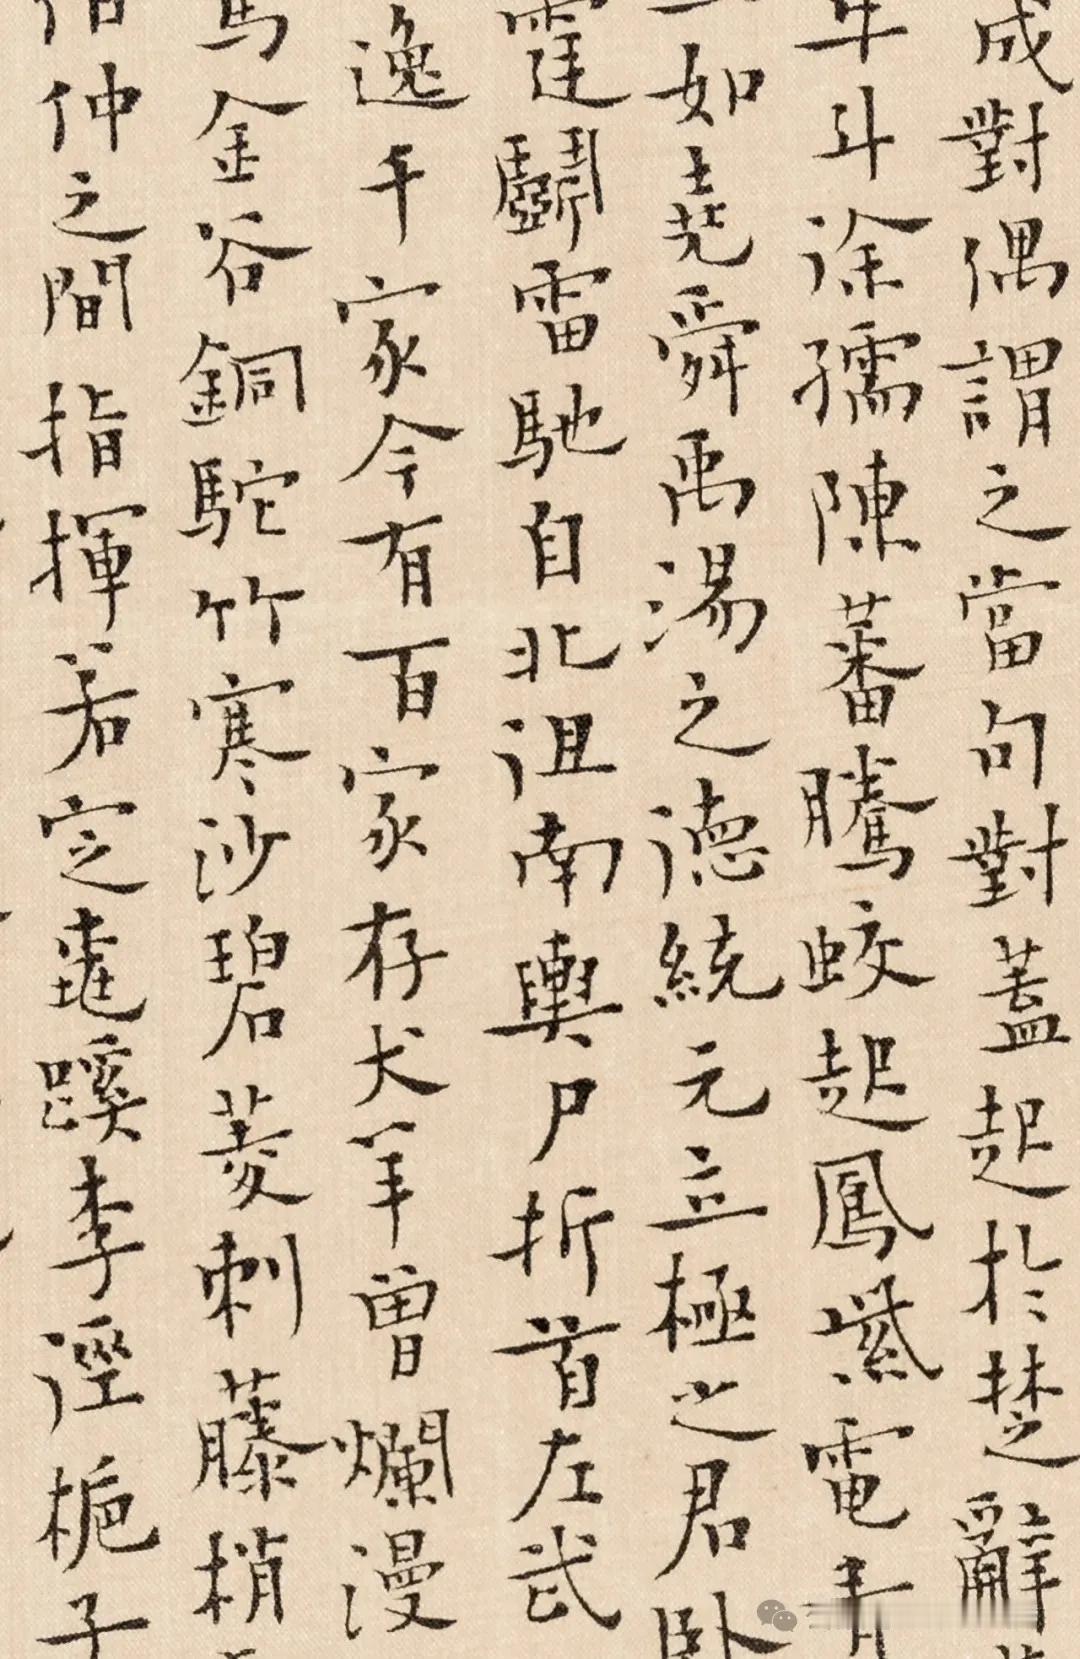 成對偶謂之當句對蓋起於楚辭
牛斗徐孺陳蕃騰蛟起鳳紫電青
如堯舜禹湯之德統元立極之君卧
霆鬬雷馳自北徂南輿尸折首左武
逸千家今有百家存犬羊曾爛漫
馬金谷銅駝竹寒沙碧菱刺藤梢
伯仲之間指揮若定桃蹊李徑梔子